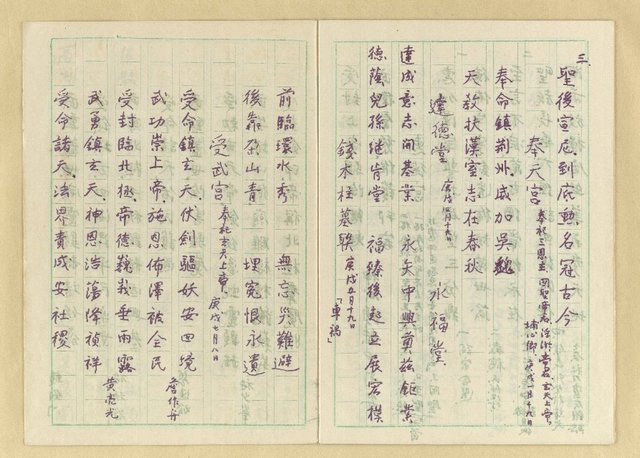 三、
聖後宣尼、到底勲名冠古今
奉天宮、奉祀三恩主、
埔心鄉、庚戌一月十九日
奉命鎮荊州、威加吳魏
天教扶漢室、志在春秋
達德堂 庚戌四月十六日、 永福堂、
達成意志開基業 永矢中興奠茲鉅業
德蔭兒孫继肯堂 福臻後起立展宏模
錢本柱墓聯 庚戌五月十九日「車禍」
前臨環水秀 無忘災難避
後靠呑山青 埋冤恨永遺
受武宮 奉祀玄天上帝、庚戌七月八日
受命鎮玄天、伏劍驅妖安四境
武功崇上帝、施恩佈澤被全民 詹作舟
受封臨北極、帝德巍峩垂雨露
武勇鎮玄天、神恩浩蕩降禎祥 黃亮光
受命諸天、法界責成安社稷